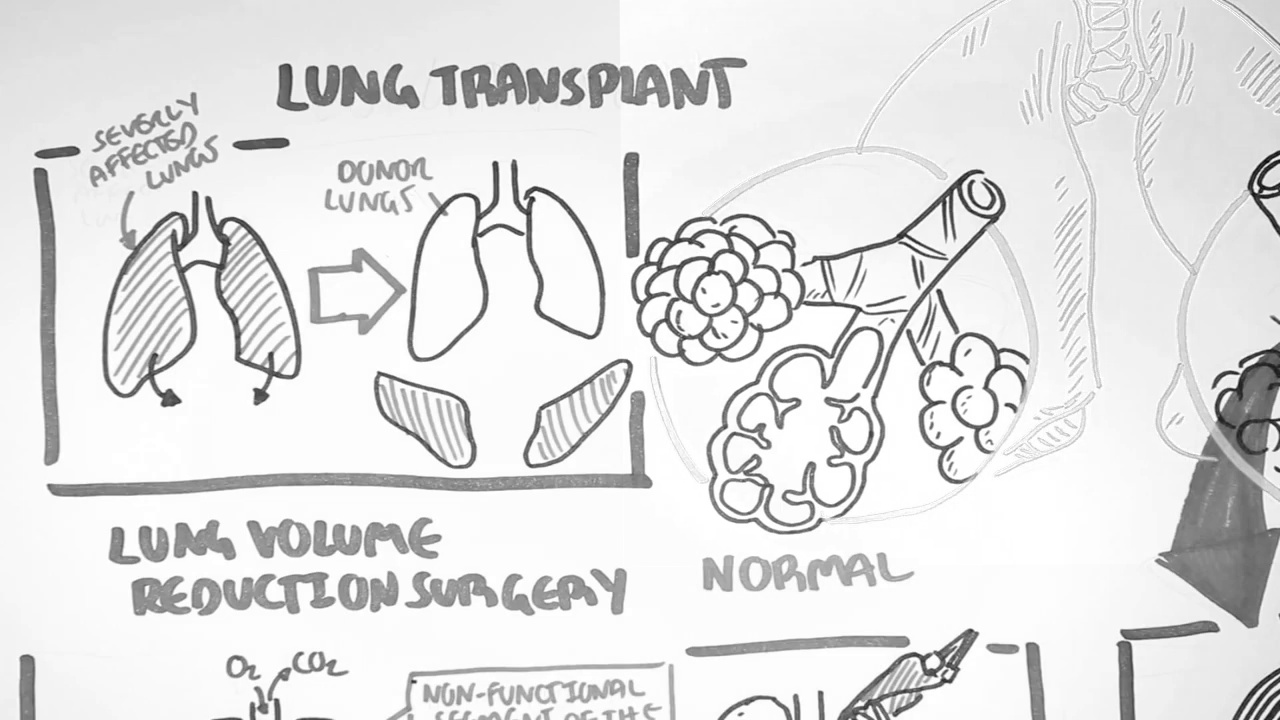 LUNG TRANSPLANT
SEVERLY
AFFECTED
LUNGS
DONOR
LUNGS
LUNG VOLUME
REDUCTION SURGERY
NORMAL
O2 CO2
NON-FUNCTIONAL
SEGMENT OF THE